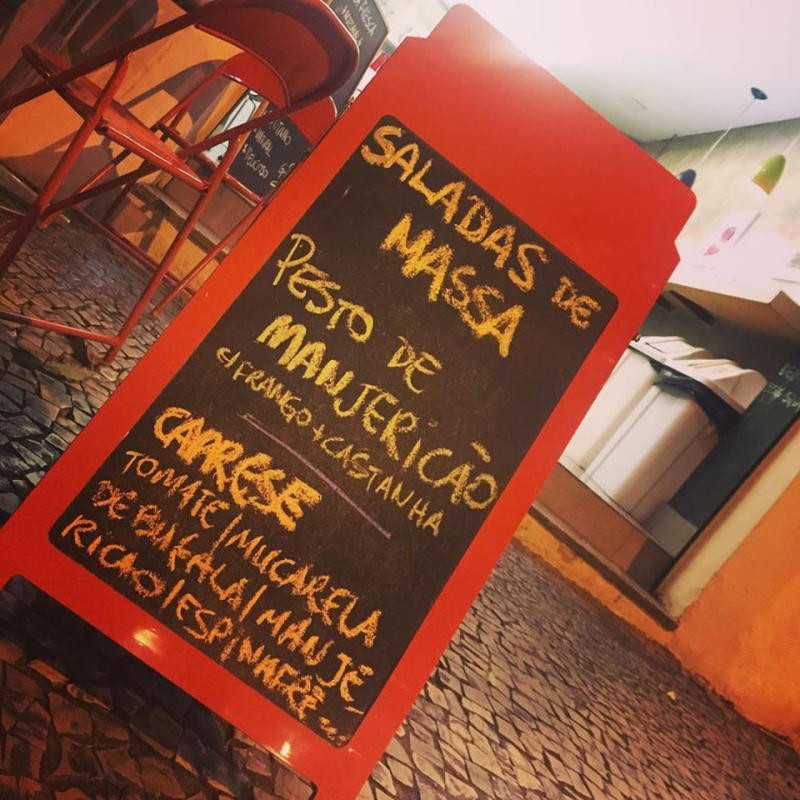 SALADAS DE
MASSA
PESTO DE
MANJERICÃO
C/FRANGO+CASTANHA
CAPRESE
TOMATE/MUÇARELA
DE BUFALA/MANJE-
RICÃO/ESPINAFRE...